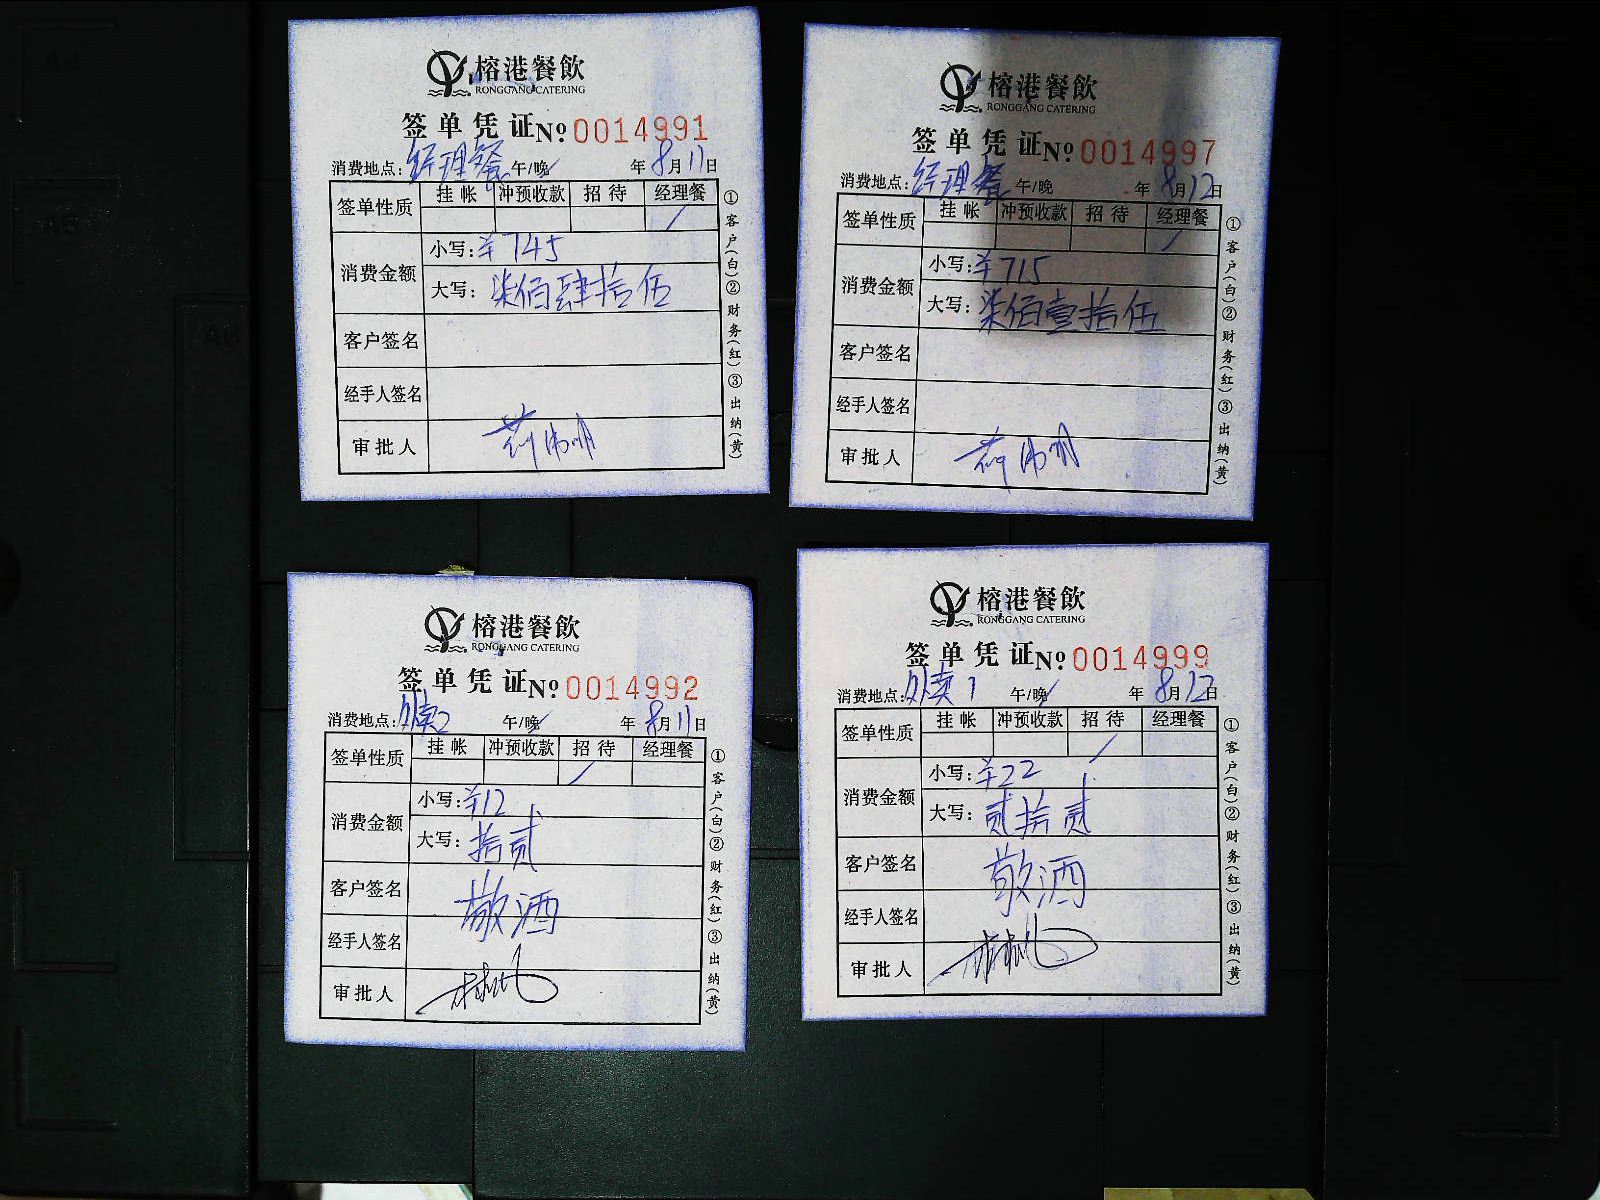 榕港餐飲
RONGGANG CATERING
签单凭证 № 0014991
消费地点：经理餐 午/晚 年 8月 11日
签单性质 挂帐 冲预收款 招待 经理餐
消费金额 小写：¥745
大写：柒佰肆拾伍
客户签名
经手人签名
审批人
①客户(白)②财务(红)③出纳(黄)
榕港餐飲
RONGGANG CATERING
签单凭证 № 0014997
消费地点：经理餐 午/晚 年 8月 12日
签单性质 挂帐 冲预收款 招待 经理餐
消费金额 小写：¥715
大写：柒佰壹拾伍
客户签名
经手人签名
审批人
①客户(白)②财务(红)③出纳(黄)
榕港餐飲
RONGGANG CATERING
签单凭证 № 0014992
消费地点：外卖2 午/晚 年 8月 11日
签单性质 挂帐 冲预收款 招待 经理餐
消费金额 小写：¥12
大写：拾贰
客户签名 敬酒
经手人签名
审批人
①客户(白)②财务(红)③出纳(黄)
榕港餐飲
RONGGANG CATERING
签单凭证 № 0014999
消费地点：外卖1 午/晚 年 8月 12日
签单性质 挂帐 冲预收款 招待 经理餐
消费金额 小写：¥22
大写：贰拾贰
客户签名 敬酒
经手人签名
审批人
①客户(白)②财务(红)③出纳(黄)